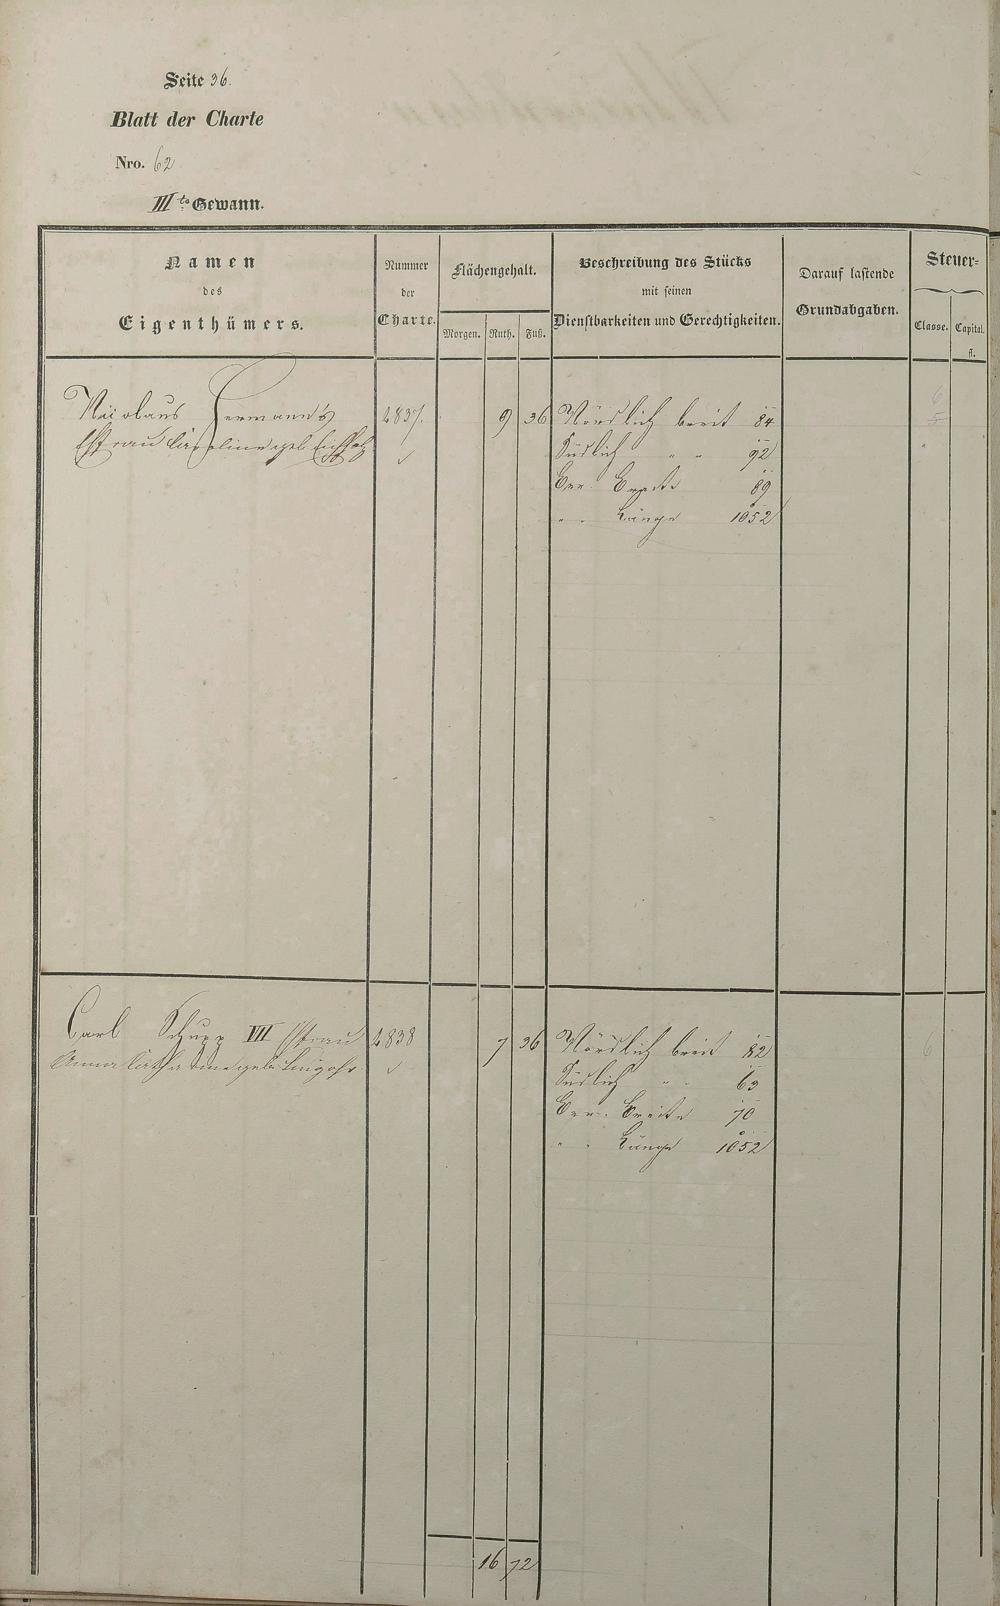 Seite 36.
Blatt der Charte
Nro. 62
III te Gewann.
Namen
des
Eigenthümers.
Nummer
der
Charte.
Flächengehalt.
Morgen. Ruth. Fuß.
Beschreibung des Stücks
mit seinen
Dienstbarkeiten und Gerechtigkeiten.
Darauf lastende
Grundabgaben.
Steuer-
Classe. Capital.
fl.
Nicolaus Hermann's 2837. 9 36 Nördlich breit 84 6
Ehfrau geb. Südlich " " 92
Ger. Breite 89
" " Länge 1052
Carl Schupp VII Ehfrau 2838 7 36 Nördlich breit 82 6
Anna Catharina geb. Südlich " " 63
Ger. Breite 70
" " Länge 1052
16 72